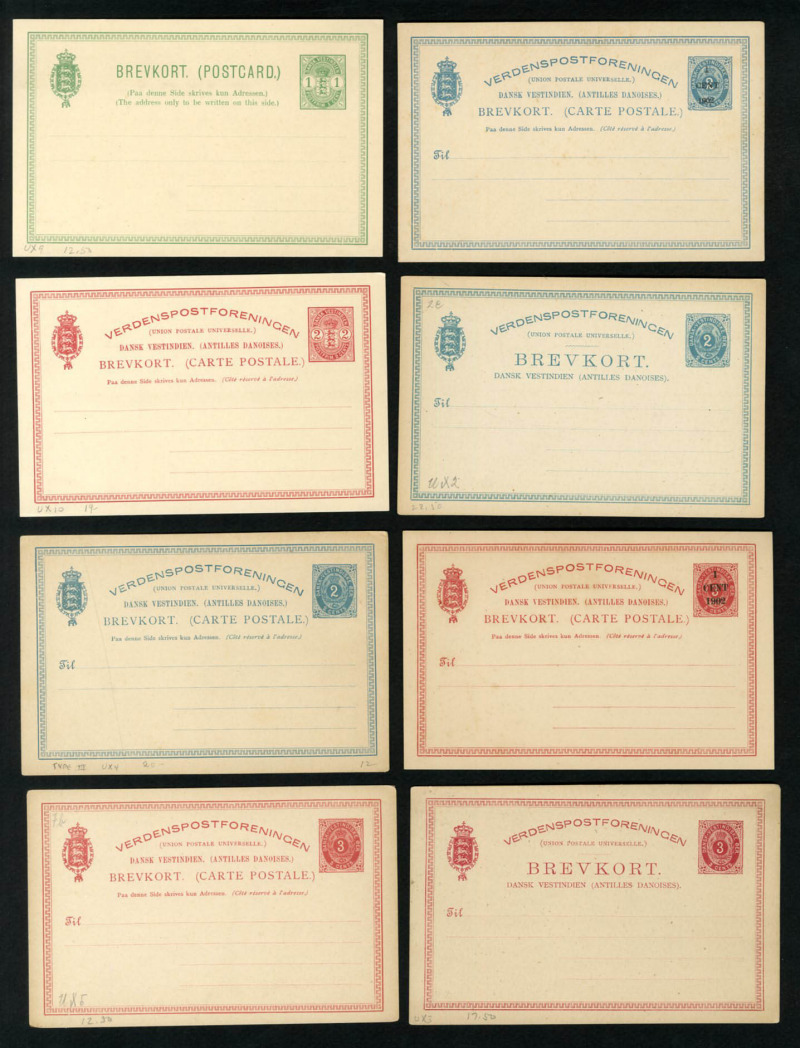 BREVKORT. (POSTCARD.)
1 1
(Paa denne Side skrives kun Adressen.)
(The address only to be written on this side.)
UX9 12.50
VERDENSPOSTFORENINGEN
(UNION POSTALE UNIVERSELLE.)
DANSK VESTINDIEN. (ANTILLES DANOISES.)
BREVKORT. (CARTE POSTALE.)
Paa denne Side skrives kun Adressen. (Côté réservé à l'adresse.)
CENT
1902
Til
VERDENSPOSTFORENINGEN
(UNION POSTALE UNIVERSELLE.)
DANSK VESTINDIEN. (ANTILLES DANOISES.)
BREVKORT. (CARTE POSTALE.)
Paa denne Side skrives kun Adressen. (Côté réservé à l'adresse.)
2 2
UX10 19-
VERDENSPOSTFORENINGEN
(UNION POSTALE UNIVERSELLE.)
BREVKORT.
DANSK VESTINDIEN (ANTILLES DANOISES).
2
CENTS
Til
UX2
VERDENSPOSTFORENINGEN
(UNION POSTALE UNIVERSELLE.)
DANSK VESTINDIEN. (ANTILLES DANOISES.)
BREVKORT. (CARTE POSTALE.)
Paa denne Side skrives kun Adressen. (Côté réservé à l'adresse.)
2
CENTS
Til
UX4 20- 12-
VERDENSPOSTFORENINGEN
(UNION POSTALE UNIVERSELLE.)
DANSK VESTINDIEN. (ANTILLES DANOISES.)
BREVKORT. (CARTE POSTALE.)
Paa denne Side skrives kun Adressen. (Côté réservé à l'adresse.)
1
CENT
1902
Til
VERDENSPOSTFORENINGEN
(UNION POSTALE UNIVERSELLE.)
DANSK VESTINDIEN. (ANTILLES DANOISES.)
BREVKORT. (CARTE POSTALE.)
Paa denne Side skrives kun Adressen. (Côté réservé à l'adresse.)
3
CENTS
Til
UX5
12.50
VERDENSPOSTFORENINGEN
(UNION POSTALE UNIVERSELLE.)
BREVKORT.
DANSK VESTINDIEN (ANTILLES DANOISES).
3
CENTS
Til
UX3 17.50